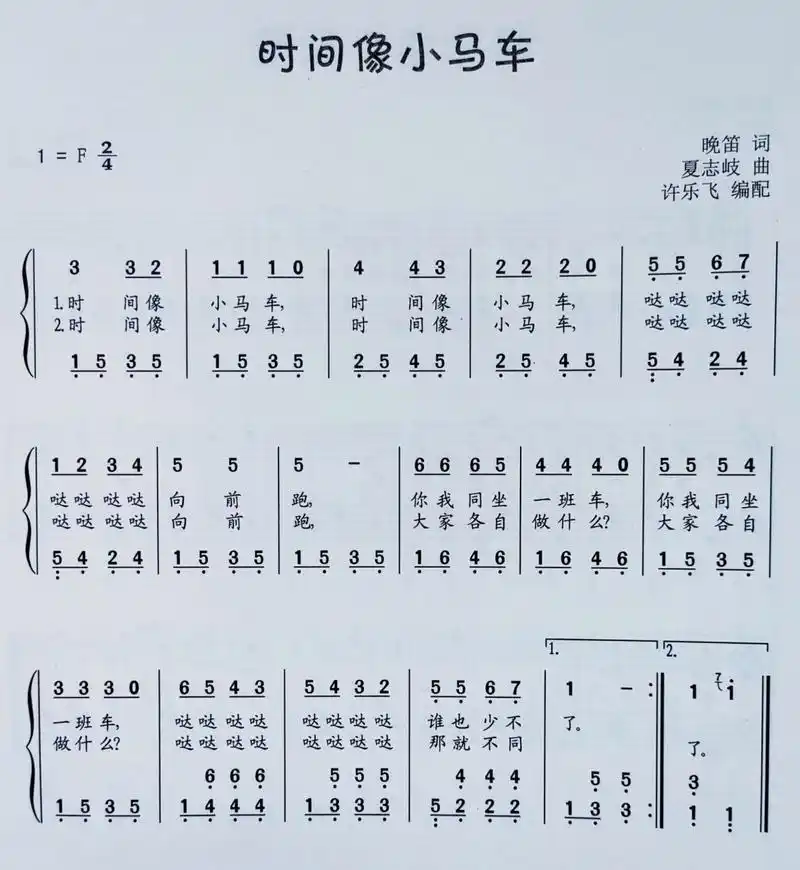 时间像小马车
1 = F 2/4
晚笛 词
夏志岐 曲
许乐飞 编配
3 3 2 1 1 1 0 4 4 3 2 2 2 0 5̣ 5̣ 6̣ 7̣
1.时 间像 小马车, 时 间像 小马车, 哒哒 哒哒
2.时 间像 小马车, 时 间像 小马车, 哒哒 哒哒
1 5 3 5 1 5 3 5 2 5 4 5 2 5 4 5 5 4 2 4
1 2 3 4 5 5 5 – 6 6 6 5 4 4 4 0 5 5 5 4
哒哒哒哒 向 前 跑, 你我同坐 一班车, 你我同坐
哒哒哒哒 向 前 跑, 大家各自 做什么? 大家各自
5 4 2 4 1 5 3 5 1 5 3 5 1 6 4 6 1 6 4 6 1 5 3 5
1. 2.
3 3 3 0 6 5 4 3 5 4 3 2 5̣ 5̣ 6̣ 7̣ 1 – : 1 i
一班车, 哒哒哒哒 哒哒哒哒 谁也少不 了。
做什么? 哒哒哒哒 哒哒哒哒 那就不同 了。
6 6 6 5 5 5 4 4 4 5 5 3
1 5 3 5 1 4 4 4 1 3 3 3 5 2 2 2 1 3 3 : 1 1